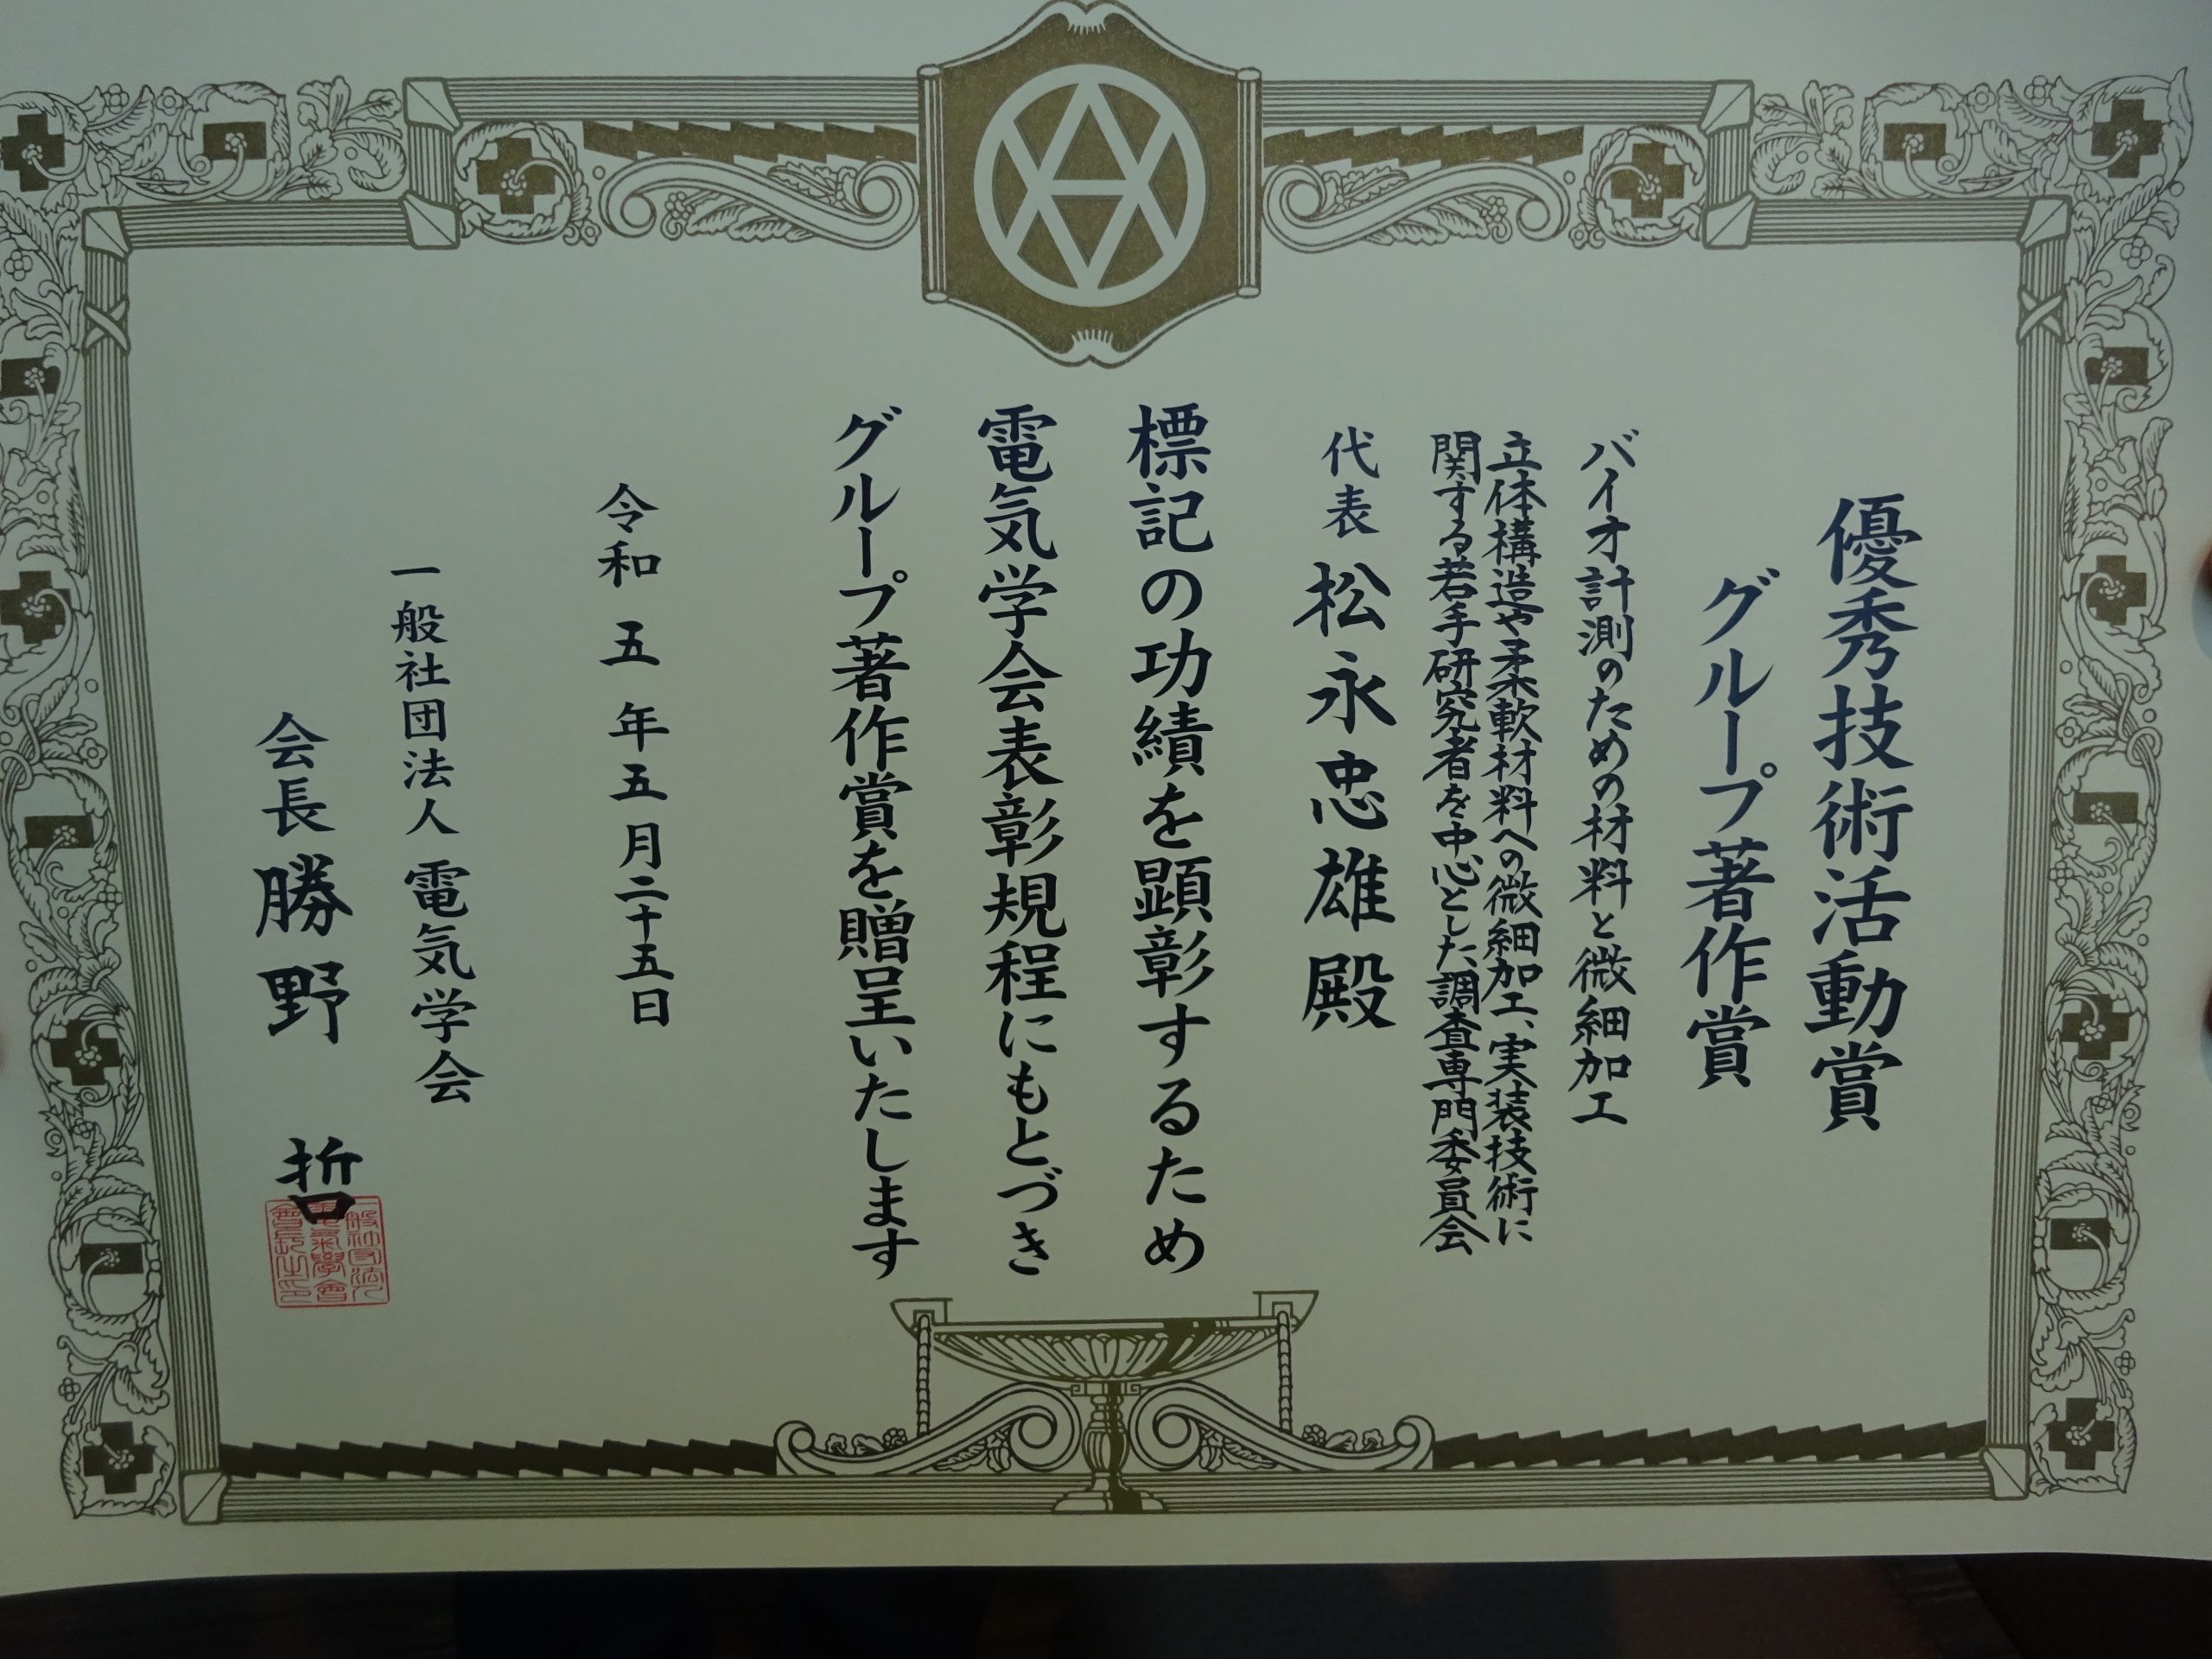 優秀技術活動賞
グループ著作賞
バイオ計測のための材料と微細加工
立体構造や柔軟材料への微細加工、実装技術に
関する若手研究者を中心とした調査専門委員会
代表 松永忠雄殿
標記の功績を顕彰するため
電気学会表彰規程にもとづき
グループ著作賞を贈呈いたします
令和五年五月二十五日
一般社団法人 電気学会
会長 勝野 哲
一般社団法人
電氣學會
會長之印